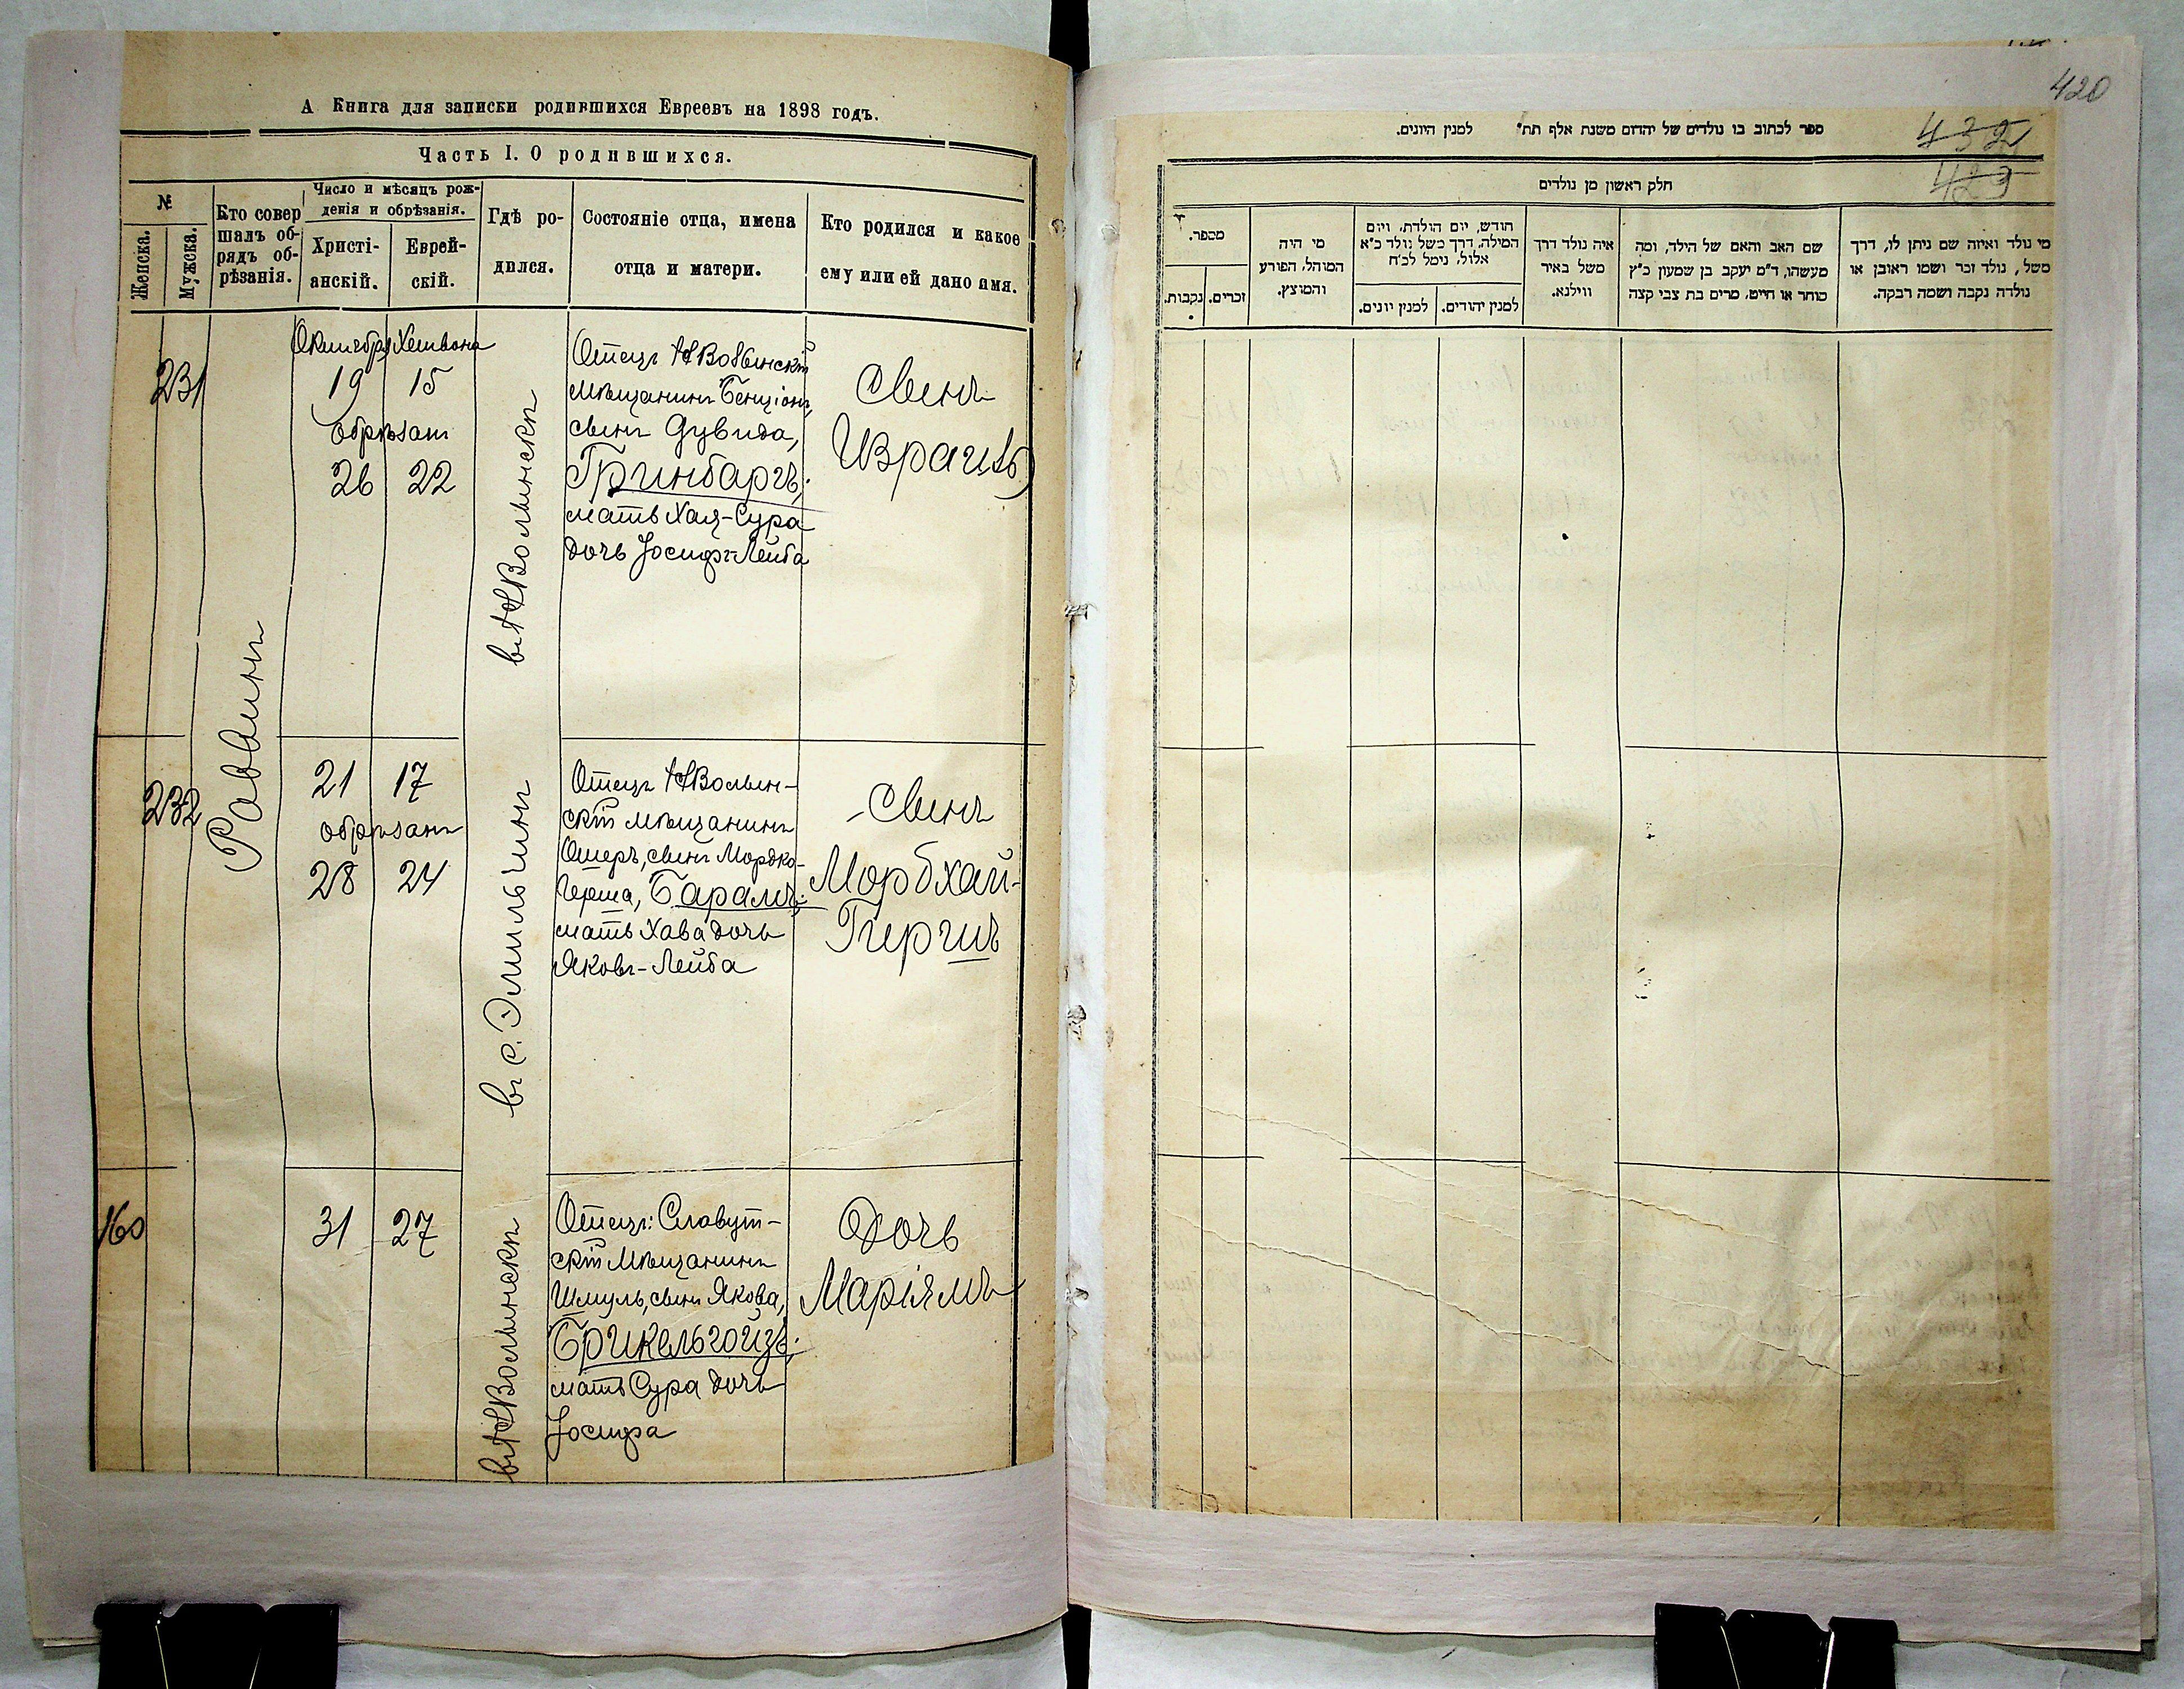 А Книга для записки родившихся Евреевъ на 1898 годъ.
Часть I. О родившихся.
№
Женска.
Мужска.
Кто совер
шалъ об-
рядъ об-
рѣзанія.
Число и мѣсяцъ рож-
денія и обрѣзанія.
Христі-
анскій.
Еврей-
скій.
Гдѣ ро-
дился.
Состояніе отца, имена
отца и матери.
Кто родился и какое
ему или ей дано имя.
Раввинъ
231
Октября Хешвона
19 15
обрѣзанъ
26 22
въ НВолынскѣ
Отецъ НВолынскій
мѣщанинъ Бенціонъ,
сынъ Дувида,
Гринбаргъ;
мать Хая-Сура
дочь Іосифъ-Лейба
сынъ
Израиль
232
21 17
обрѣзанъ
28 24
въ с. Эмильчинъ
Отецъ НВолын-
скій мѣщанинъ
Ошеръ, сынъ Мордко-
Герша, Барамъ;
мать Хава дочь
Яковъ-Лейба
сынъ
Мордхай-
Гиршъ
160
31 27
въ НВолынскѣ
Отецъ: Славут-
скій мѣщанинъ
Шмуль, сынъ Якова,
Брикельгойзъ;
мать Сура дочь
Іосифа
Дочь
Маріямъ
420
432
423
ספר לכתוב בו נולדים של יהדום משנת אלף תת" למנין היונים.
חלק ראשון מן נולדים
מספר.
נקבות.
זכרים.
מי היה
המוהל, הפורע
והמוצץ.
חודש, יום הולדת, ויום
המילה, דרך משל נולד כ"א
אלול, נימל לכ"ח
למנין יונים.
למנין יהודים.
איה נולד דרך
משל באיר
ווילנא.
שם האב והאם של הילד, ומה
מעשהו, ד"ם יעקב בן שמעון כ"ץ
סוחר או חייט, מרים בת צבי קצה
מי נולד ואיזה שם ניתן לו, דרך
משל, נולד זכר ושמו ראובן או
נולדה נקבה ושמה רבקה.